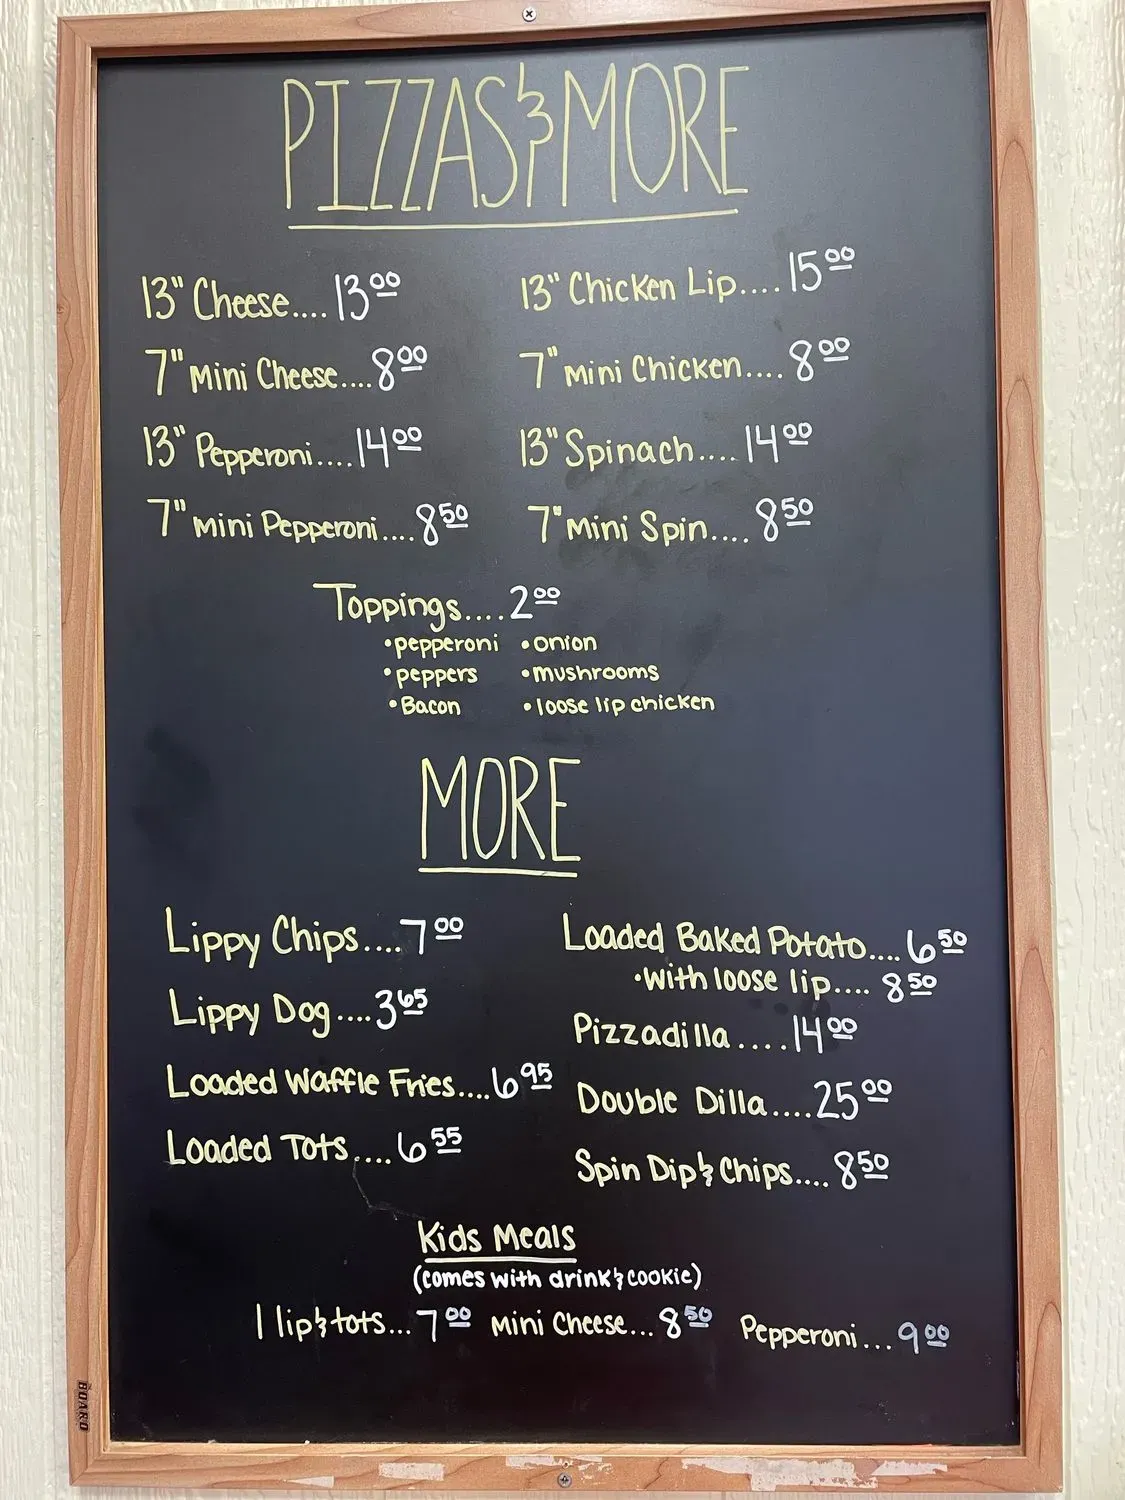 PIZZAS & MORE
13" Cheese.... 13.00
7" mini Cheese.... 8.00
13" Pepperoni.... 14.00
7" mini Pepperoni.... 8.50
13" Chicken Lip.... 15.00
7" mini Chicken.... 8.00
13" Spinach.... 14.00
7" mini Spin.... 8.50
Toppings.... 2.00
•pepperoni •onion
•peppers •mushrooms
•Bacon •loose lip chicken
MORE
Lippy Chips.... 7.00
Lippy Dog.... 3.65
Loaded Waffle Fries.... 6.95
Loaded Tots.... 6.55
Loaded Baked Potato.... 6.50
•with loose lip.... 8.50
Pizzadilla.... 14.00
Double Dilla.... 25.00
Spin Dip & Chips.... 8.50
Kids Meals
(comes with drink & cookie)
1 lip & tots... 7.00 Mini Cheese... 8.50 Pepperoni... 9.00
THE BOARD